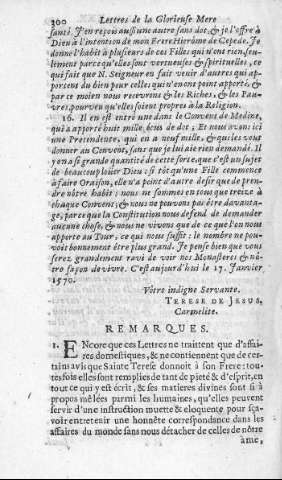 300 Lettres de la Glorieuse Mere
santé. J'en reçois aussi une autre sans dot, & je l'offre à
Dieu à l'intention de mon Frere Hierôme de Cepede. Je
donne l'habit à plusieurs de ces Filles qui n'ont rien, seu-
lement parce qu'elles sont vertueuses & spirituelles, ce
qui fait que N. Seigneur en fait venir d'autres qui ap-
portent du bien pour celles qui n'en ont point apporté, &
par ce moien nous recevons & les Riches, & les Pau-
vres, pourveu qu'elles soient propres à la Religion.
16. Il en est entré une dans le Convent de Medine,
qui a apporté huit mille, écus de dot; Et nous avons ici
une Pretendente, qui en a neuf mille, & qui les veut
donner au Convent, sans que je lui aie rien demandé. Il
y en a si grande quantité de cette sorte que c'est un sujet
de beaucoup loüer Dieu: si tôt qu'une Fille commence
à faire Oraison, elle n'a point d'autre desir que de pren-
dre nôtre habit; nous ne sommes en tout que treize à
chaque Convent; & nous ne pouvons pas être davanta-
ge, parce que la Constitution nous defend de demander
aucune chose, & nous ne vivons que de ce que l'on nous
apporte au Tour, ce qui nous suffit: le nombre ne pou-
voit bonnement être plus grand. Je pense bien que vous
serez grandement ravi de voir nos Monasteres & nô-
tre façon de vivre. C'est aujourd'hui le 17. Janvier
1570.
Vôtre indigne Servante.
TERESE DE JESUS,
Carmelite.
REMARQUES.
1. ENcore que ces Lettres ne traittent que d'affai-
res domestiques, & ne contiennent que de cer-
tains avis que Sainte Terese donnoit à son Frere: tou-
tesfois elles sont remplies de tant de pieté & d'esprit, en
tout ce qui y est écrit, & ses matieres divines sont si à
propos mélées parmi les humaines, qu'elles peuvent
servir d'une instruction muette & eloquente pour sça-
voir entretenir une honnête correspondance dans les
affaires du monde sans nous détacher de celles de nôtre
ame,